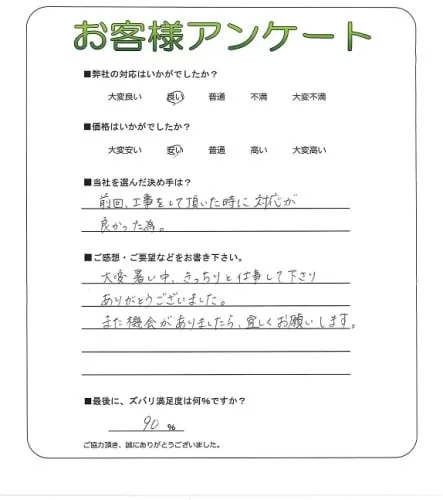 お客様アンケート
■弊社の対応はいかがでしたか?
大変良い 良い 普通 不満 大変不満
■価格はいかがでしたか?
大変安い 安い 普通 高い 大変高い
■当社を選んだ決め手は?
前回、工事をして頂いた時に対応が
良かった為。
■ご感想・ご要望などをお書き下さい。
大変暑い中、きっちりと仕事して下さり
ありがとうございました。
また機会がありましたら、宜しくお願いします。
■最後に、ズバリ満足度は何%ですか?
90 %
ご協力頂き、誠にありがとうございました。